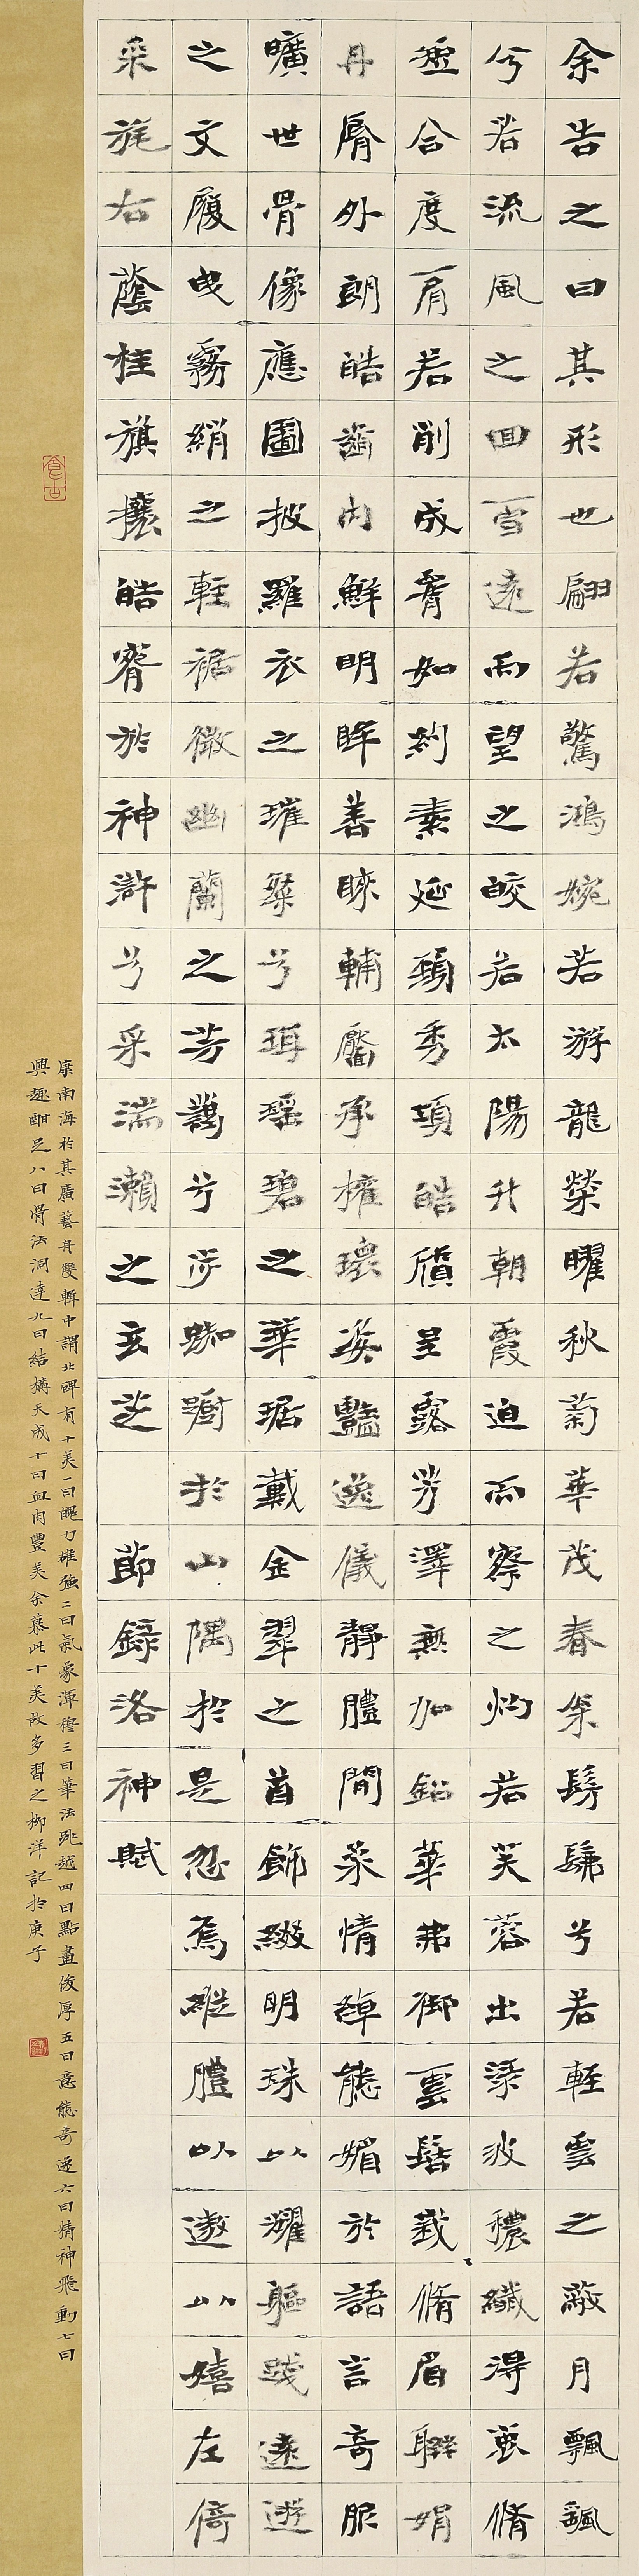 余告之曰其形也翩若驚鴻婉若游龍榮曜秋菊華茂春枀髣髴兮若輕雲之蔽月飄飖
兮若流風之回雪遠而望之皎若太陽升朝霞迫而察之灼若芙蓉出渌波穠纖得衷脩
短合度肩若削成腰如約素延頸秀項皓質呈露芳澤無加鉛華弗御雲髻峩脩眉聯娟
丹脣外朗皓齒內鮮明眸善睞輔靨承權瓌姿豔逸儀靜體閒柔情綽態媚於語言奇服
曠世骨像應圖披羅衣之璀粲兮珥瑤碧之華琚戴金翠之首飾綴明珠以耀軀踐遠遊
之文履曳霧綃之輕裾微幽蘭之芳藹兮步踟躕於山隅於是忽焉縱體以遨以嬉左倚
采旄右蔭桂旗攘皓腕於神滸兮采湍瀨之玄芝 節錄洛神賦
康南海於其廣藝舟雙楫中謂北碑有十美一曰魄力雄強二曰氣象渾穆三曰筆法跳越四曰點畫峻厚五曰意態奇逸六曰精神飛動七曰
興趣酣足八曰骨法洞達九曰結構天成十曰血肉豐美余慕此十美故多習之柳洋記於庚子
食古